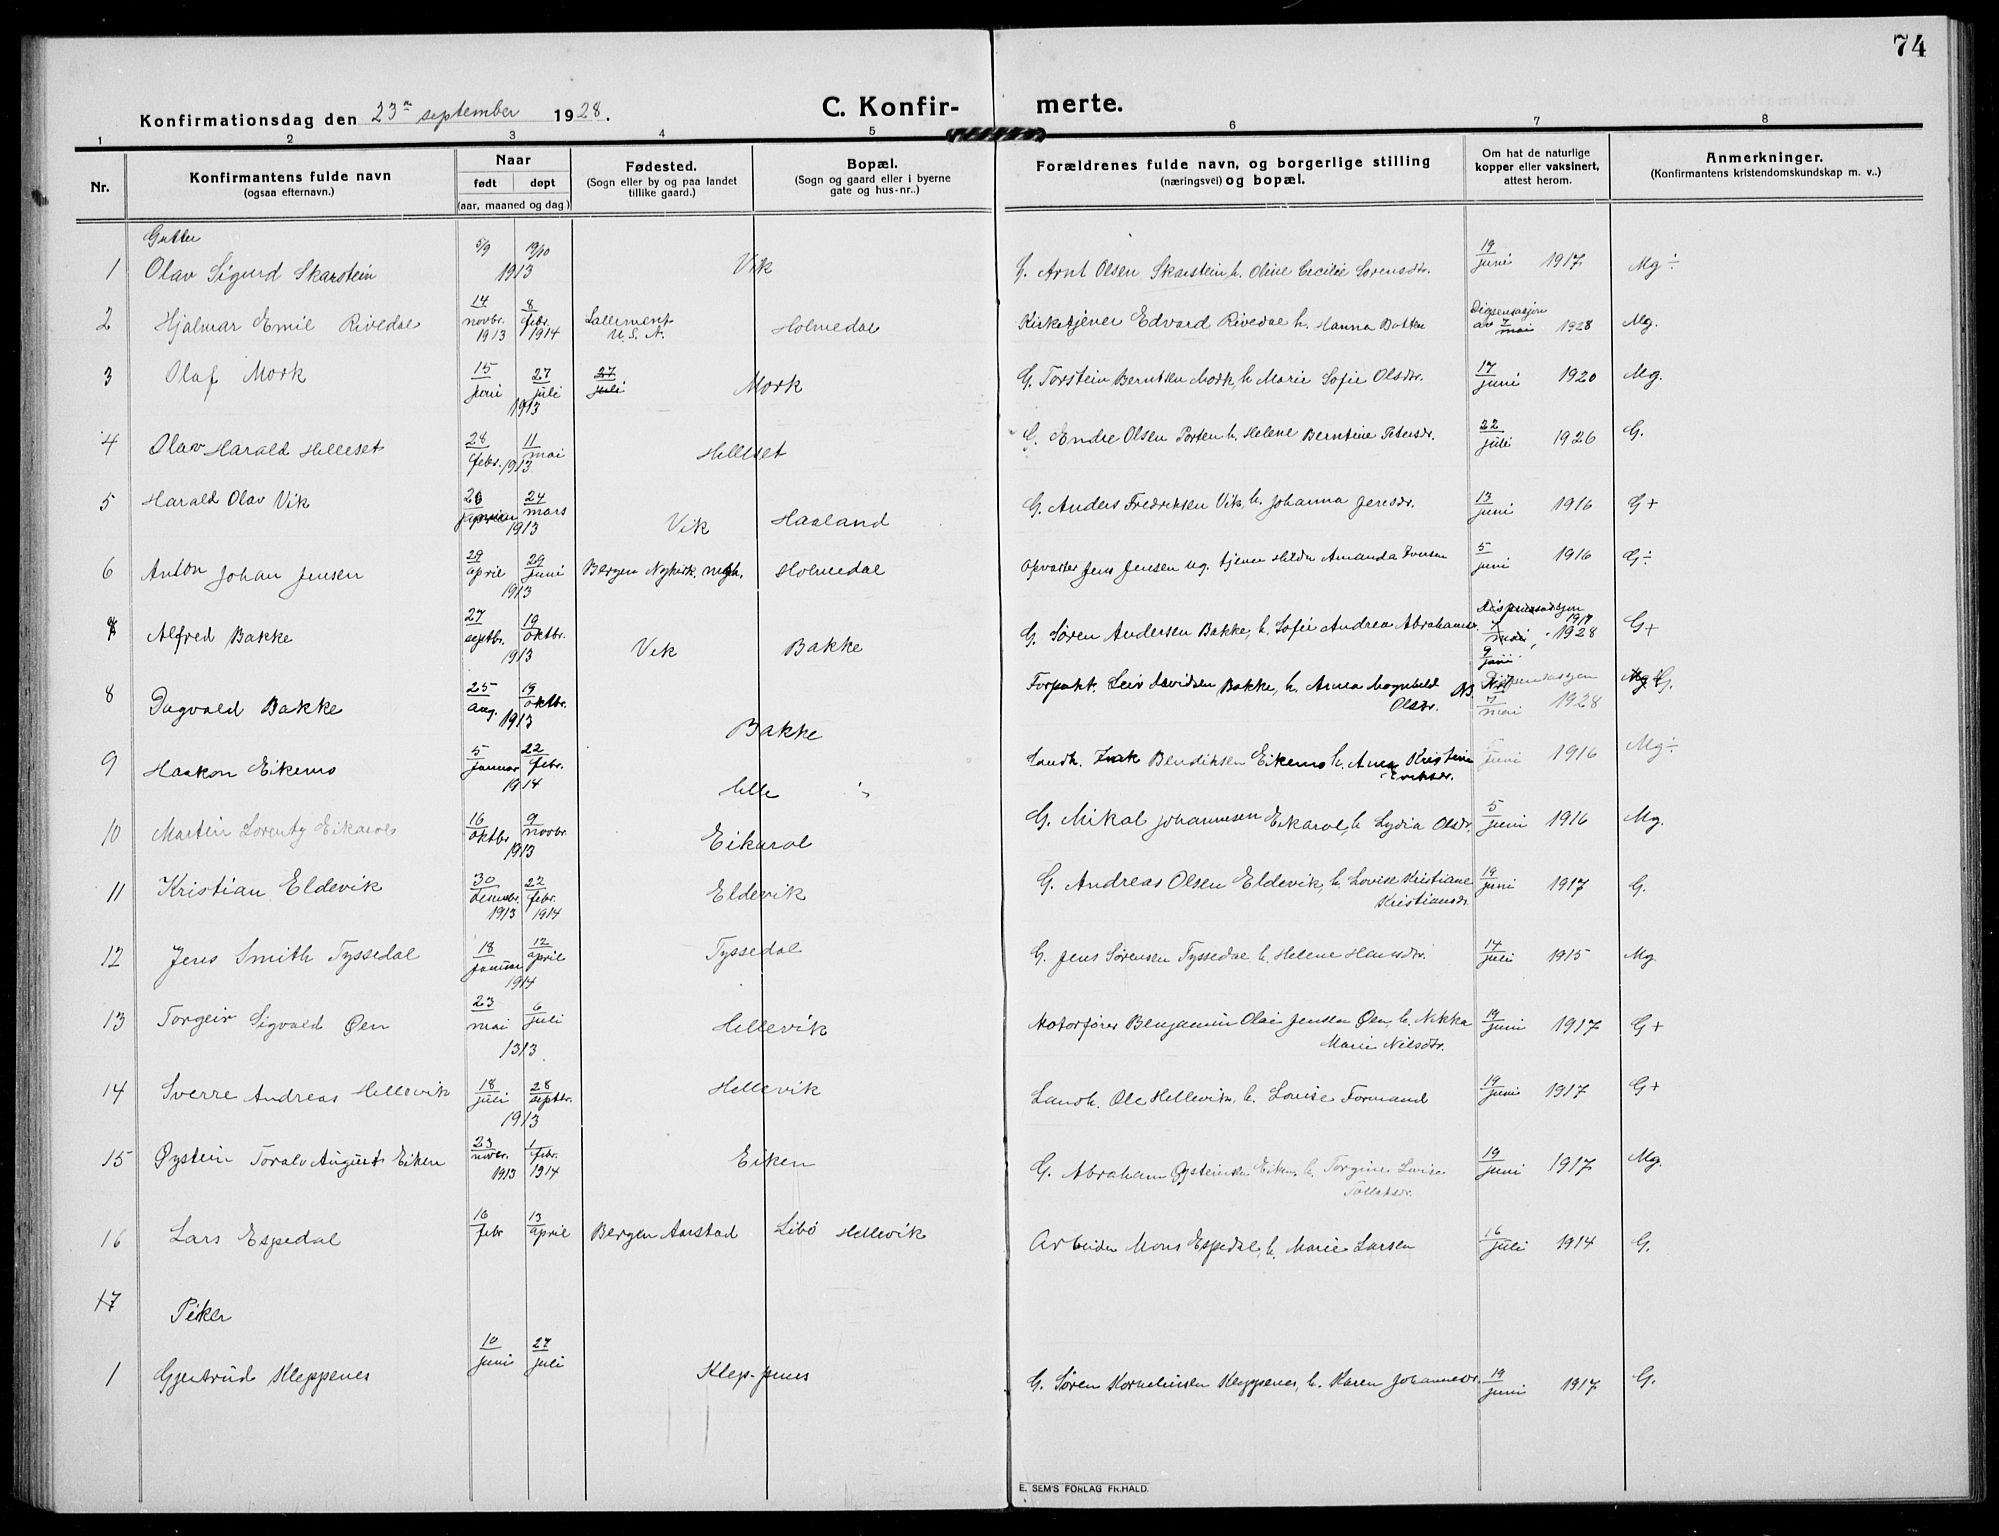 74
Konfirmationsdag den 23de september 1928. C. Konfirmerte.
1 2 3 4 5 6 7 8
Nr. Konfirmantens fulde navn (ogsaa efternavn.) Naar født døpt (aar, maaned og dag) Fødested. (Sogn eller by og paa landet tillike gaard.) Bopæl. (Sogn og gaard eller i byerne gate og hus-nr..) Forældrenes fulde navn, og borgerlige stilling (næringsvei) og bopæl. Om hat de naturlige kopper eller vaksinert, attest herom. Anmerkninger. (Konfirmantens kristendomskundskap m. v..)
Gutter
1 Olav Sigurd Skarstein 5/9 19/10 1913 Vik G. Arnt Olsen Skarstein h. Oline Cecilie Sørensdr. 19 juni 1917 Mg÷
2 Hjalmar Emil Rivedal 14 novbr. 1913 8 febr. 1914 U.S.A. Holmedal Kirketjener Edvard Rivedal h. Hanna Botten Dispensasjon av 7 mai 1928 Mg.
3 Olaf Mork 15 juni 27 juli 1913 27 juli Mork G. Torstein Berntsen Mork, h. Marie Sofie Olsdr. 17 juni 1920 Mg.
4 Olav Harald Helleset 28 febr. 11 mai 1913 Helleset G. Endre Olsen Porten h. Helene Berntine Petersdr. 22 juli 1926 G.
5 Harald Olav Vik 26 januar 24 mars 1913 Vik Haaland G. Anders Fredriksen Vik, h. Johanna Jensdr. 13 juni 1916 G+
6 Anton Johan Jensen 29 april 29 juni 1913 Bergen Nykirk. mgh. Holmedal Opvarter Jens Jensen ug. tjener Hilda Amanda Iversen 5 juni 1916 G÷
7 Alfred Bakke 27 septbr. 19 oktbr. 1913 Vik Bakke G. Søren Andersen Bakke, h. Sofie Andrea Abrahamsdr. Dispensasjon 7 mai 1928 9 juni 1917 G+
8 Dagvald Bakke 25 aug. 19 oktbr. 1913 Bakke Forpakt. Leiv Davidsen Bakke, h. Anna Magnhild Olsdr. Dispensasjon 7 mai 1928 Mg G.
9 Haakon Eikemo 5 januar 22 febr. 1914 Ulle Landh. Isak Bendiksen Eikemo h. Anna Kristine Eriksdr. juni 1916 Mg÷
10 Martin Lorentz Eikarol 16 oktbr. 9 novbr. 1913 Eikarol G. Mikal Johannesen Eikarol, h. Lydia Olsdr. 5 juni 1916 Mg.
11 Kristian Eldevik 30 desembr. 1913 22 febr. 1914 Eldevik G. Andreas Olsen Eldevik, h. Lovise Kristiane Kristiansdr. 19 juni 1917 G.
12 Jens Smith Tyssedal 18 januar 12 april 1914 Tyssedal G. Jens Sørensen Tyssedal h. Helene Hansdr. 14 juli 1915 Mg
13 Torgeir Sigvald Øen 23 mai 6 juli 1313 Hellevik Motorfører Benjamin Olai Jensen Øen, h. Nikka Marie Nilsdr. 19 juni 1917 G+
14 Sverre Andreas Hellevik 18 juli 28 septbr. 1913 Hellevik Landh. Ole Hellevik, h. Louise Formand 19 juni 1917 G+
15 Øystein Toralv August Eiken 23 novbr. 1913 1 febr. 1914 Eiken G. Abraham Øysteinsen Eiken, h. Torgine Lovise Tollaksdr. 19 juni 1917 Mg.
16 Lars Espedal 16 febr 13 april Bergen Aarstad Libø Hellevik Arbeider Mons Espedal, h. Marie Larsen 16 juli 1914 G.
17 Piker
1 Gjertrud Kleppenes 10 juni 27 juli Kleppenes G. Søren Korneliusen Kleppenes, h. Karen Johannesdr. 19 juni 1917 G.
E. SEM'S FORLAG FR.HALD.